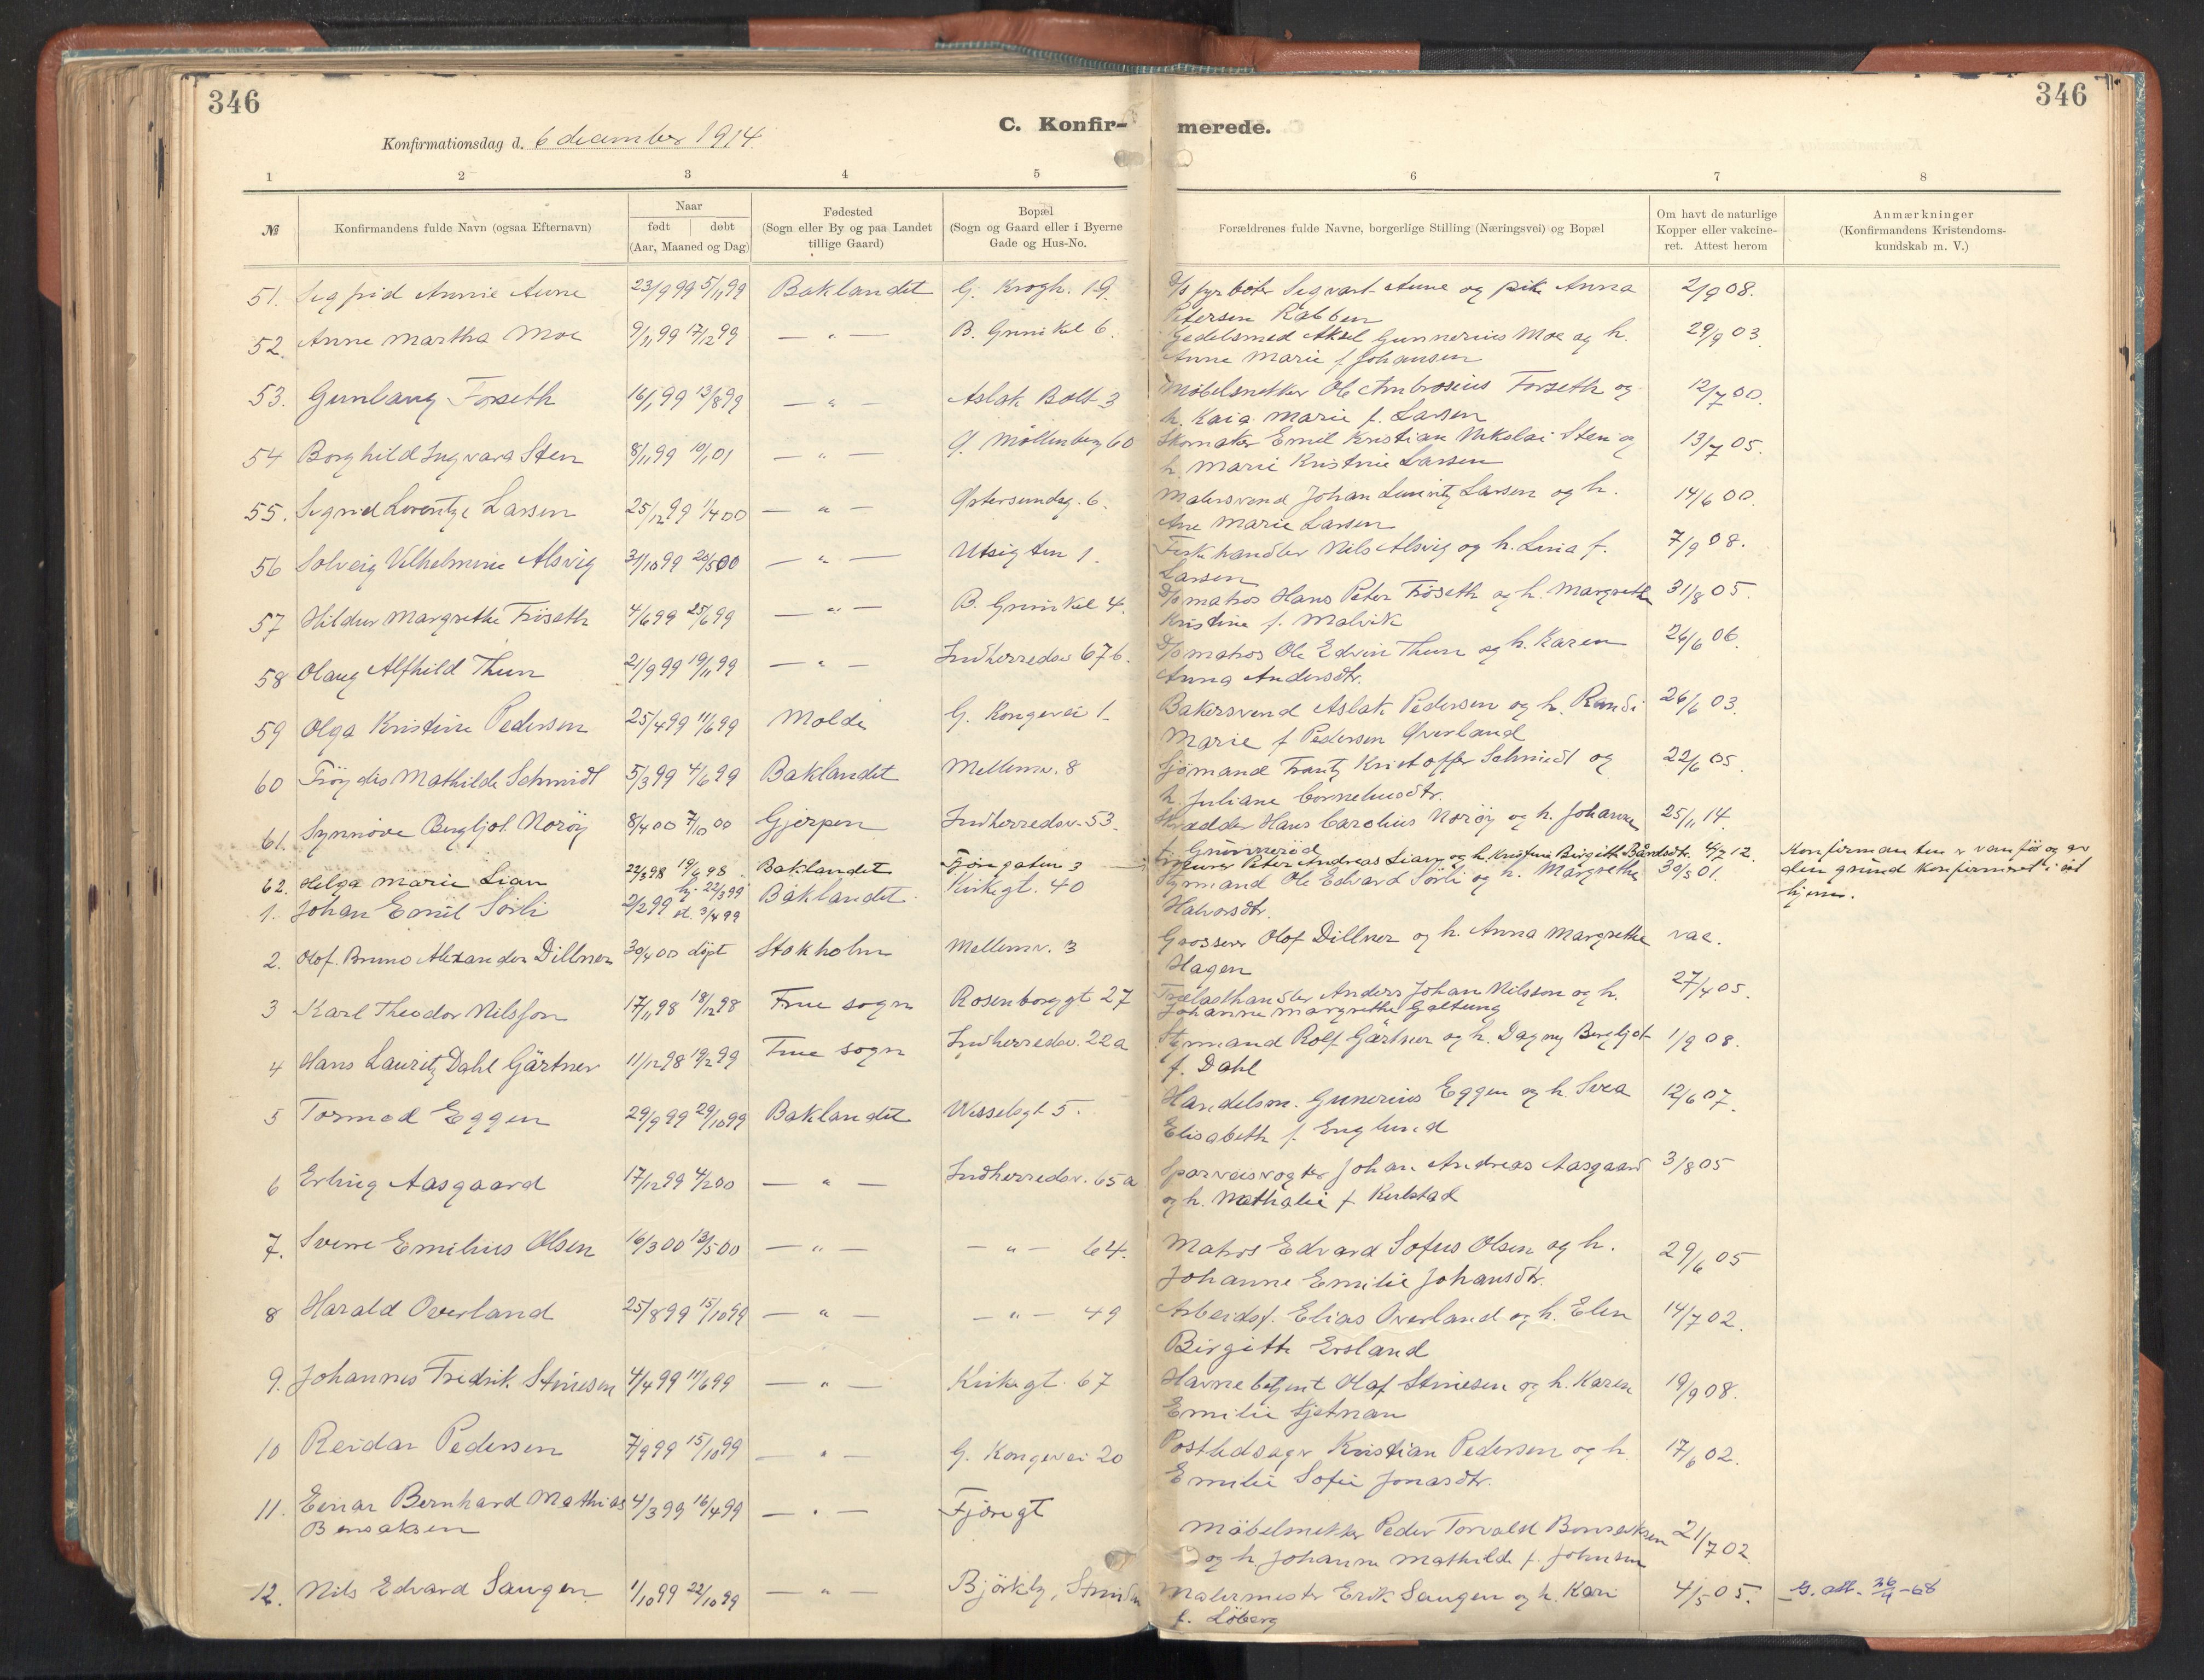 346
346
C. Konfir-
merede.
Konfirmationsdag d. 6 december 1914.
1 2 3 4 5 6 7 8
№
Konfirmandens fulde Navn (ogsaa Efternavn)
Naar
født døbt
(Aar, Maaned og Dag)
Fødested
(Sogn eller By og paa Landet
tillige Gaard)
Bopæl
(Sogn og Gaard eller i Byerne
Gade og Hus-No.
Forældrenes fulde Navne, borgerlige Stilling (Næringsvei) og Bopæl
Om havt de naturlige
Kopper eller vakcine-
ret. Attest herom
Anmærkninger
(Konfirmandens Kristendoms-
kundskab m. V.)
51. Sigfrid Annie Aune 23/9 99 5/11 99 Baklandet G. Krogh. 19. D/S fyrböter Sigvart Aune og pike Anna 2/9 08.
Petersen Rabben
52. Anne Martha Moe 9/11 99 17/12 99 — " — B. Grinikel 6. Gjedelsmed Aksel Gunnerius Moe og h. 29/9 03
Anne Marie f Johansen
53. Gunlaug Forseth 16/1 99 13/8 99 — " — Aslak Bolt 3 Möbelsnekker Ole Ambrosius Forseth og 12/7 00.
h. Kaia Marie f. Larsen
54 Borghild Ingvara Sten 8/11 99 10/1 01 — " — Ø. Möllenberg 60 Skomaker Emil Kristian Nikolai Sten og 13/7 05.
h. Marie Kristine Larsen
55. Sigrid Lorentze Larsen 25/12 99 1/4 00 — " — Østersundsg. 6. Malersvend Johan Lauritz Larsen og h. 14/6 00.
Ane Marie Larsen
56 Solveig Vilhelmine Alsvig 31/10 99 20/5 00 — " — Utsigten 1. Fiskehandler Nils Alsvig og h. Lina f. 7/9 08.
Larsen
57 Hildur Margrethe Fröseth 4/6 99 25/6 99 — " — B. Grinikel 4. D/S matros Hans Peter Fröseth og h. Margrethe 31/8 05.
Kristine f. Malvik
58 Olaug Alfhild Thun 21/9 99 19/11 99 — " — Indherredsv 67b. D/S matros Ole Edvin Thun og h. Karen 26/6 06.
Anna Andersdtr.
59 Olga Kristine Pedersen 25/4 99 11/6 99 Molde G. Kongevei 1. Bakersvend Aslak Pedersen og h. Randi 26/6 03.
Marie f Pedersen Øverland
60 Fröydis Mathilde Schmidt 5/3 99 4/6 99 Baklandet Mellemv. 8 Sjömand Frantz Kristoffer Schmidt og 22/6 05.
h. Juliane Corneliusdtr.
61. Synnöve Bergljot Noröy 8/4 00 7/10 00 Gjerpen Indherredsv. 53. Skrædder Hans Carolius Noröy og h. Johanne 25/11 14.
f. Grinneröd
62. Helga Marie Lian 22/3 98 19/6 98 Baklandet Fjöregaten 3 Peter Andreas Lian og h. Kristine Birgitte Bårdsdtr. 4/7 12. Konfirmanten er vanför og av
1. Johan Emil Sörli 2/2 99 hj. 22/3 99 Baklandet Kirkegt. 40 Styrmand Ole Edvard Sörli og h. Margrethe 30/5 01. den grund konfirmeret i sit
st. 3/4 99 Halvorsdtr. hjem.
2. Olof Bruno Alexander Dillner 30/4 00 döpt Stokholm Mellemv. 3 Grosserer Olof Dillner og h. Anna Margrethe vac.
Hagen
3 Karl Theodor Nilsson 17/11 98 18/12 98 Frue sogn Rosenborggt 27 Trælasthandler Anders Johan Nilsson og h. 27/4 05.
Johanne Margrethe Galtung
4 Hans Lauritz Dahl Gärtner 11/12 98 19/2 99 Frue sogn Indherredsv. 22a Styrmand Rolf Gärtner og h. Dagny Bergljot 1/9 08.
f. Dahl
5 Tormod Eggen 29/9 99 29/10 99 Baklandet Wesselsgt 5. Handelsm. Gunerius Eggen og h. Svea 12/6 07.
Elisabeth f. Englund
6 Erling Aasgaard 17/12 99 4/2 00 — " — Indherredsv. 65a Sporveisvogter Johan Andreas Aasgaard 3/8 05
og h. Mathalie f Rulstad
7. Sverre Emilius Olsen 16/3 00 13/5 00 — " — — " — 64. Matros Edvard Sofus Olsen og h. 29/6 05
Johanne Emilie Johansdtr.
8 Harald Overland 25/8 99 15/10 99 — " — — " — 49 Arbeidsf. Elias Overland og h. Elen 14/7 02.
Birgitte Ersland
9. Johannes Fredrik Stinesen 4/4 99 11/6 99 — " — Kirkegt. 67 Havnebetjent Olaf Stinesen og h. Karen 19/9 08.
Emilie Sjetnan
10 Reidar Pedersen 7/9 99 15/10 99 — " — G. Kongevei 20 Postledsager Kristian Pedersen og h. 17/6 02.
Emilie Sofie Jonasdtr.
11. Einar Bernhard Mathias 4/3 99 16/4 99 — " — Fjöregt Möbelsnekker Peder Torvald Bonsaksen 21/7 02
Bonsaksen og h. Johanne Mathilde f. Johnsen
12. Nils Edvard Saugen 1/10 99 22/10 99 — " — Björkly, Strinda Malermester Erik Saugen og h. Kari 4/5 05. G. att. 26/9-68
f. Löberg